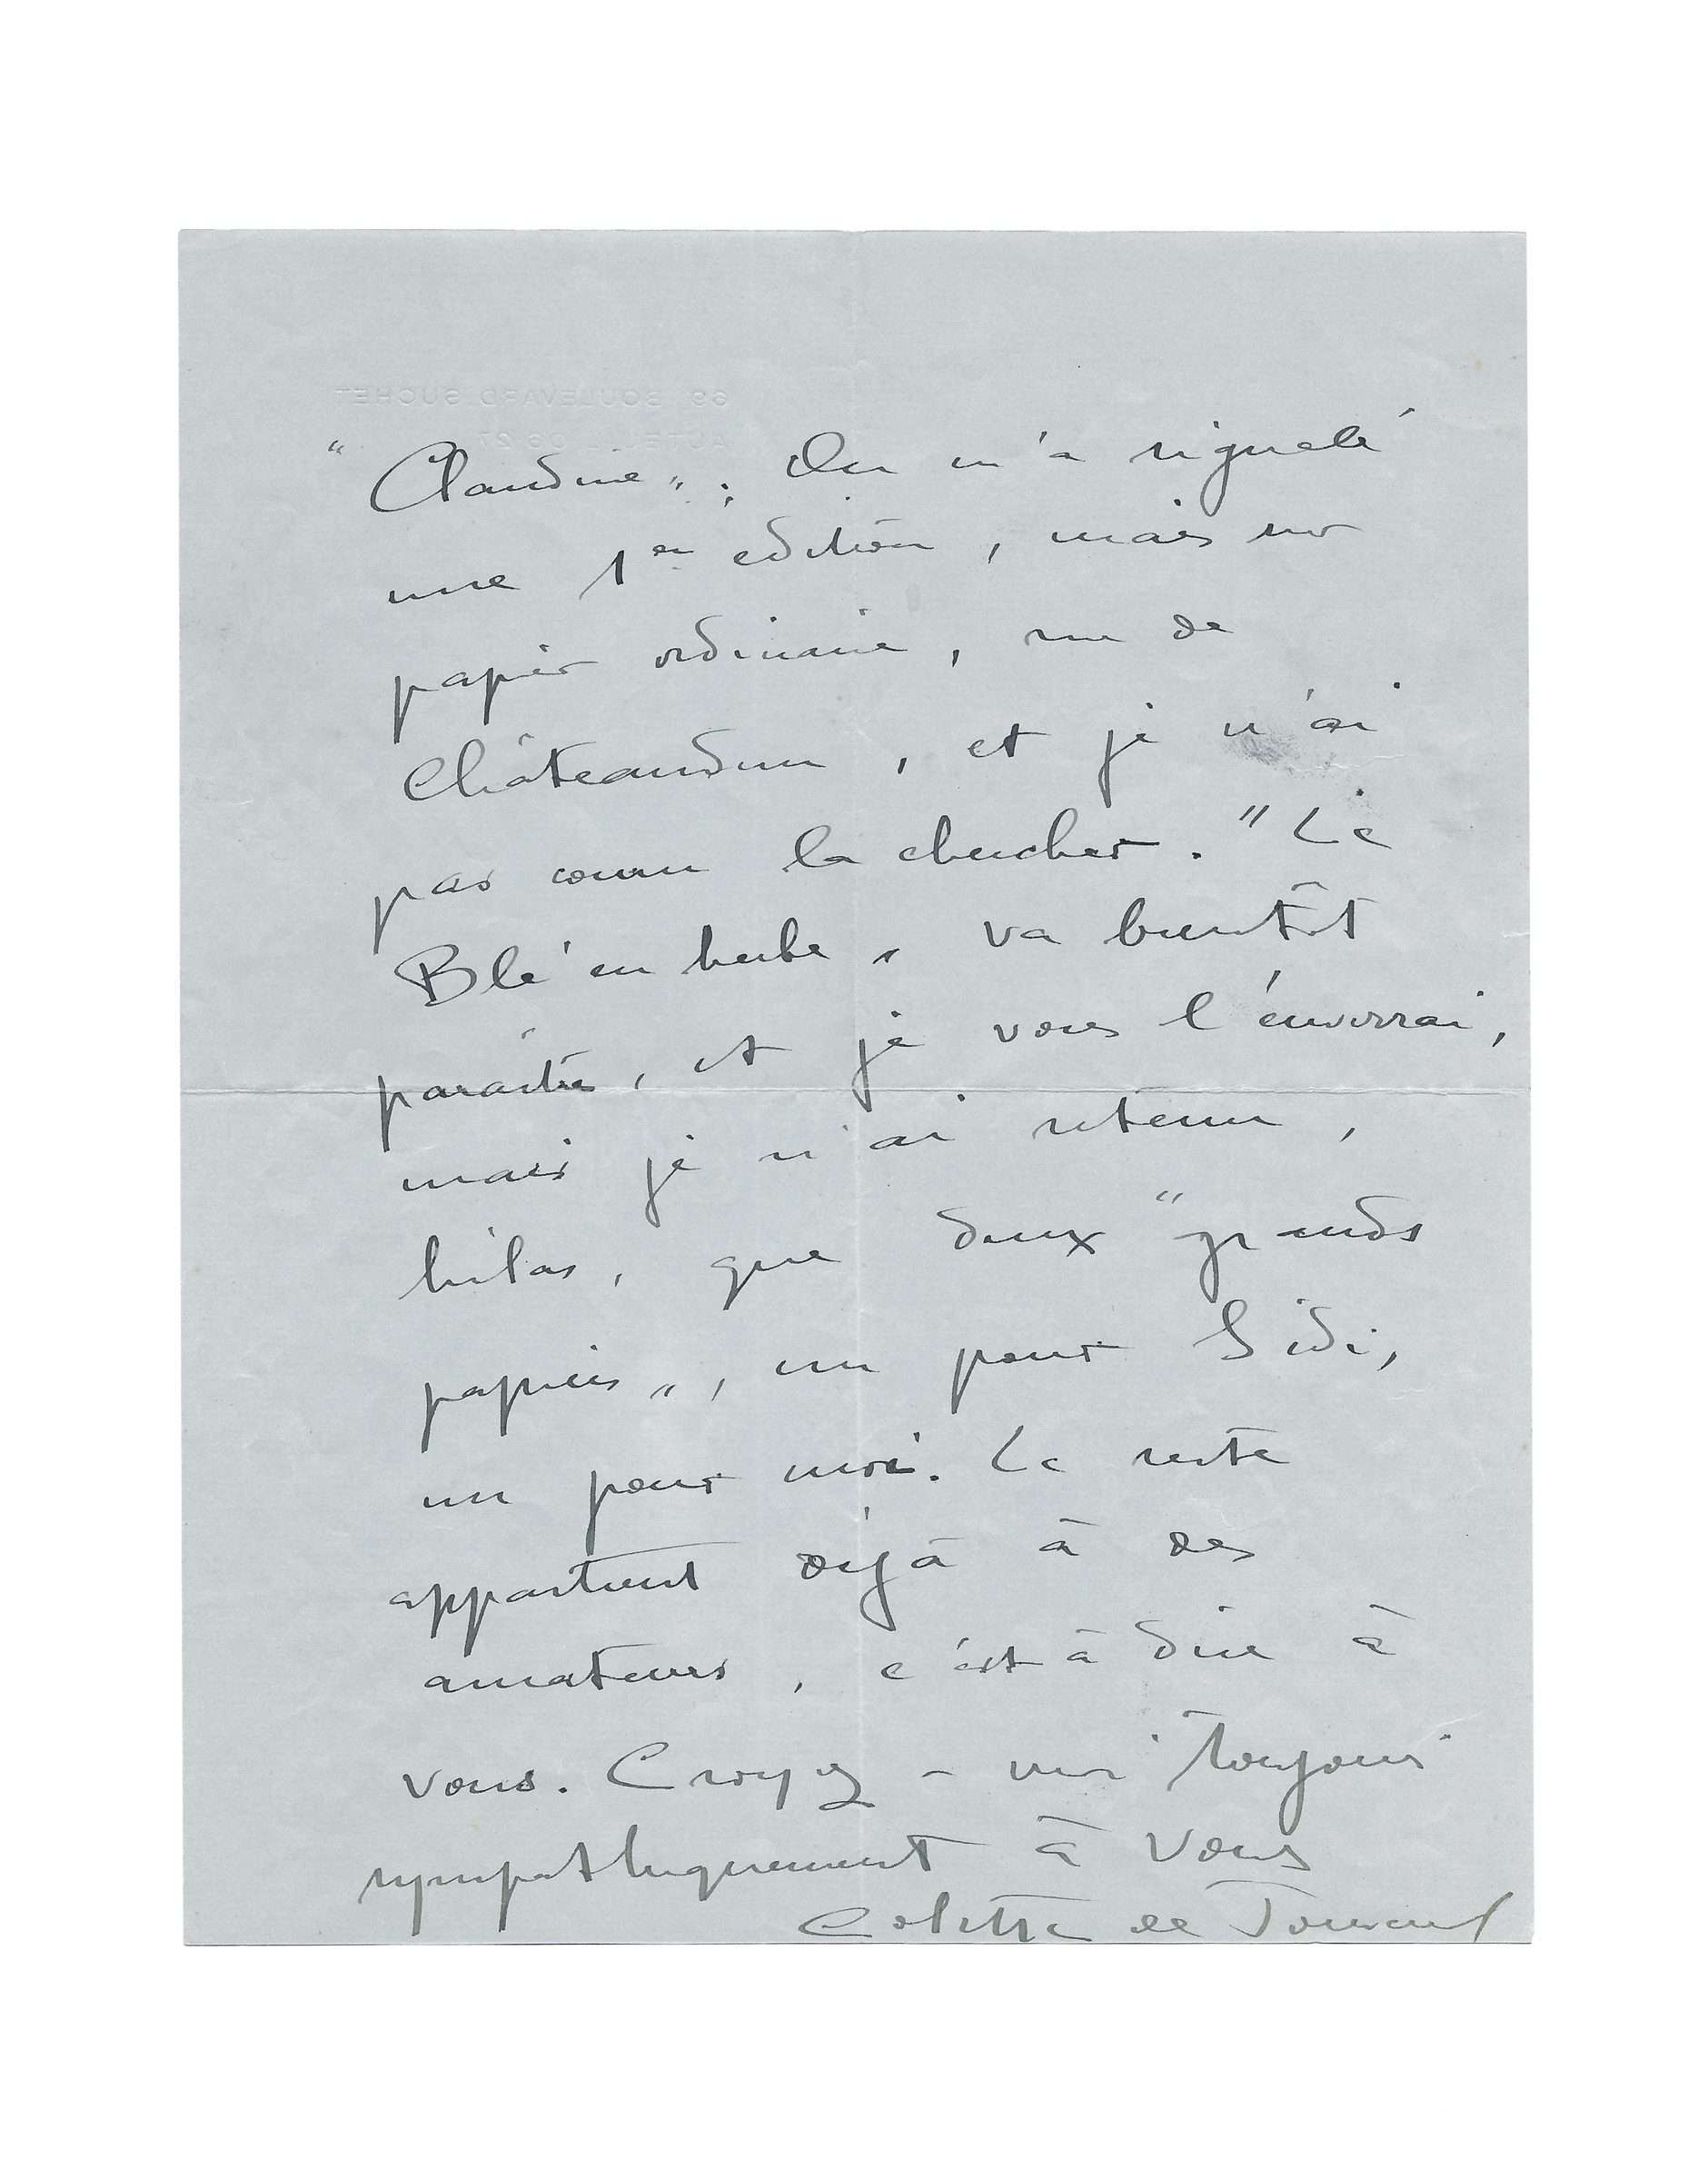 69 BOULEVARD SUCHET
"Claudine". On m'a signalé
une 1ère édition, mais sur
papier ordinaire, rue de
Châteaudun, et je n'ai
pas couru la chercher. "Le
Blé en herbe" va bientôt
paraître, et je vous l'enverrai,
mais je n'ai retenu,
hélas, que deux "grands
papiers", un pour Sidi,
un pour moi. Le reste
appartient déjà à des
amateurs, c'est à dire à
vous. Croyez-moi toujours
sympathiquement à vous
Colette de Jouvenel